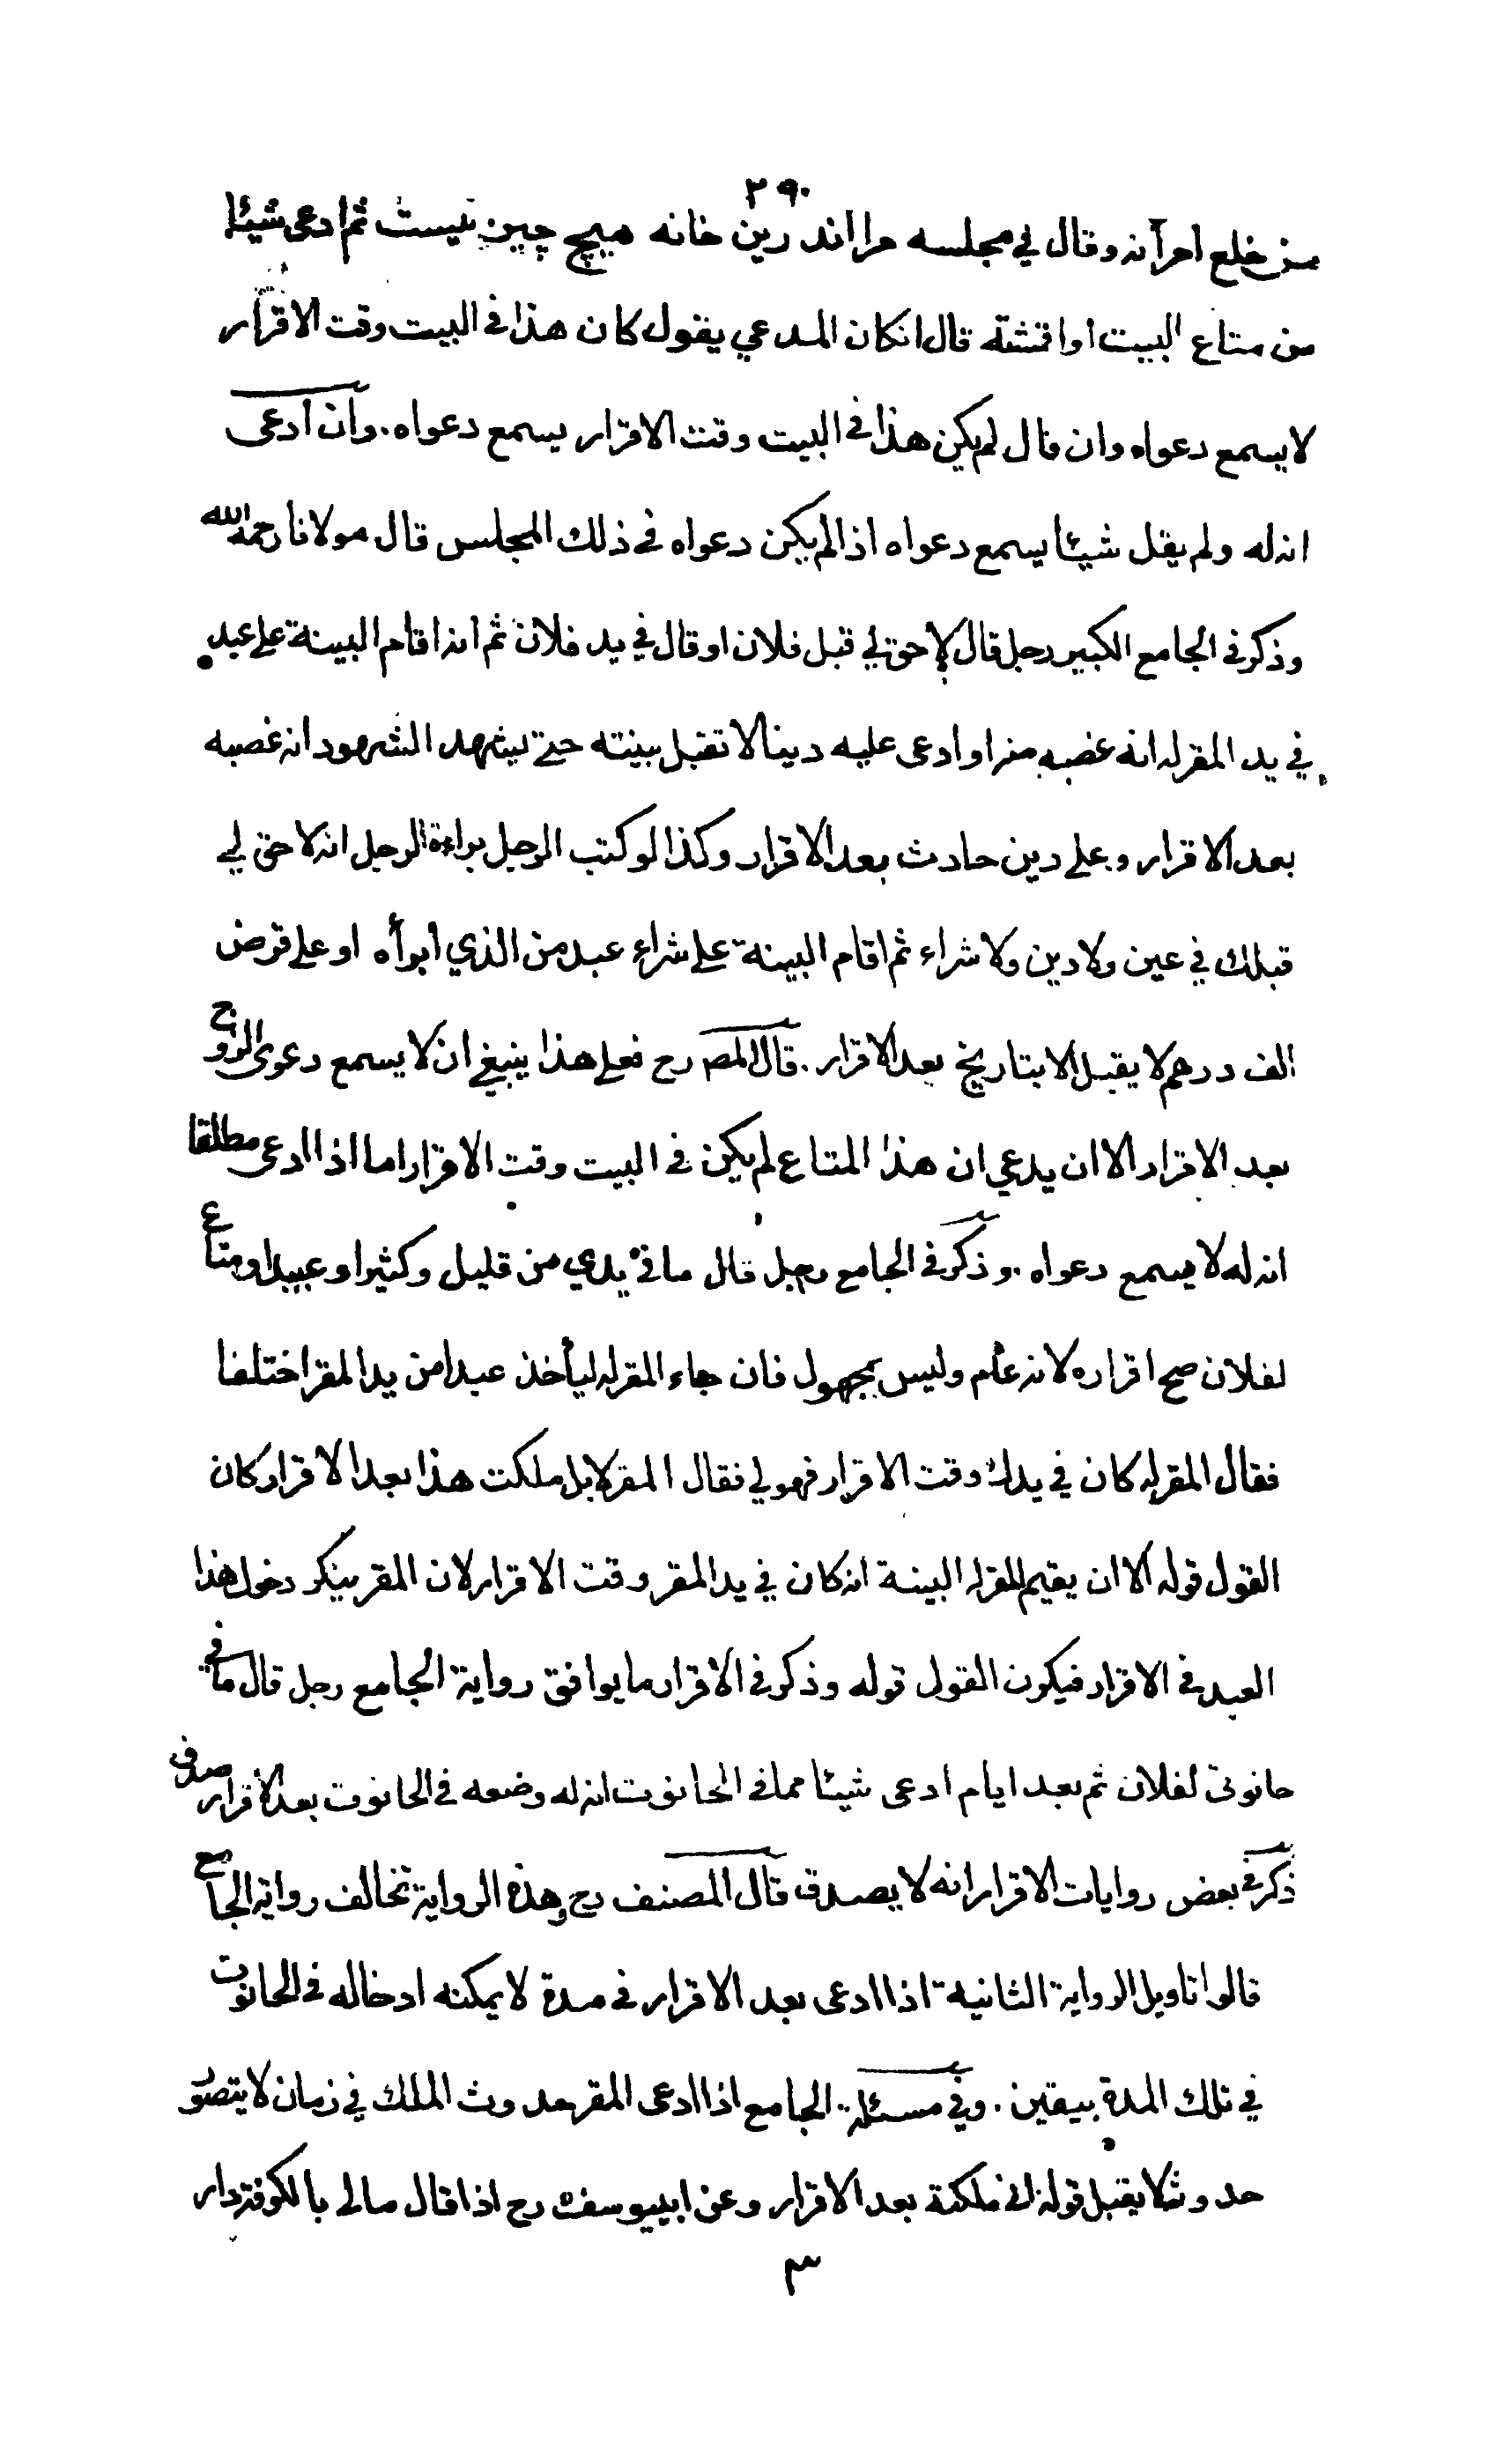 ٣٩٠
من خلع امرأته وقال في مجلسه مرا اندرين خانه هيچ چيز نيست ثم ادعى شيئا
من متاع البيت او اقمشته قال انكان المدعي يقول كان هذا في البيت وقت الاقرار
لا يسمع دعواه وان قال لم يكن هذا في البيت وقت الاقرار يسمع دعواه . وان ادعى
انه له ولم يقل شيئا يسمع دعواه اذا لم يكن دعواه في ذلك المجلس قال مولانا رحمه الله
وذكر في الجامع الكبير رجل قال لا حق لي قبل فلان او قال في يد فلان ثم انه اقام البينة على عبد
في يد المقر له انه غصبه منه او ادعى عليه دينا لا تقبل بينته حتى يشهد الشهود انه غصبه
بعد الاقرار وعلى دين حادث بعد الاقرار وكذا لو كتب الرجل براءة الرجل انه لا حق لي
قبلك في عين ولا دين ولا شراء ثم اقام البينة على شراء عبد من الذي ابرأه او على قرض
الف درهم لا يقبل الا بتاريخ بعد الاقرار . قال المص رح فعلى هذا ينبغي ان لا يسمع دعوى الزوج
بعد الاقرار الا ان يدعي ان هذا المتاع لم يكن في البيت وقت الاقرار اما اذا ادعى مطلقا
انه له لا يسمع دعواه . وذكر في الجامع رجل قال ما في يدي من قليل وكثير او عبيد او متاع
لفلان صح اقراره لانه عام وليس بمجهول فان جاء المقر له ليأخذ عبدا من يد المقر اختلفا
فقال المقر له كان في يدك وقت الاقرار فهو لي فقال المقر لا بل ملكت هذا بعد الاقرار كان
القول قوله الا ان يقيم المقر له البينة انه كان في يد المقر وقت الاقرار لان المقر ينكر دخول هذا
العبد في الاقرار فيكون القول قوله وذكر في الاقرار ما يوافق رواية الجامع رجل قال ما في
حانوتي لفلان ثم بعد ايام ادعى شيئا مما في الحانوت انه له وضعه في الحانوت بعد الاقرار صدق
ذكر في بعض روايات الاقرار انه لا يصدق قال المصنف رح وهذه الرواية تخالف رواية الجامع
قالوا تاويل الرواية الثانية اذا ادعى بعد الاقرار في مدة لا يمكنه ادخاله في الحانوت
في تلك المدة بيقين . وفي مسئلة الجامع اذا ادعى المقر حدوث الملك في زمان لا يتصور
حدوثه لا يقبل قوله اني ملكته بعد الاقرار وعن ابي يوسف رح اذا قال مالي بالكوفة دار
٣